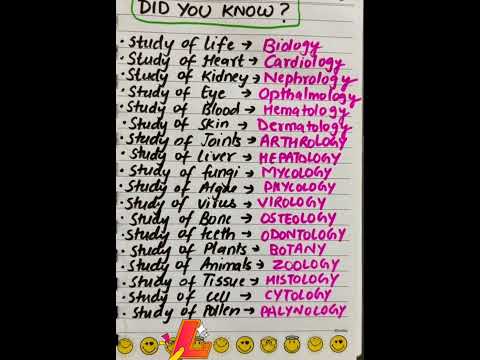 DID YOU KNOW?
• Study of life → Biology
• Study of Heart → Cardiology
• Study of Kidney → Nephrology
• Study of Eye → Opthalmology
• Study of Blood → Hematology
• Study of Skin → Dermatology
• Study of Joints → ARTHROLOGY
• Study of liver → HEPATOLOGY
• Study of fungi → MYCOLOGY
• Study of Algae → PHYCOLOGY
• Study of virus → VIROLOGY
• Study of Bone → OSTEOLOGY
• Study of teeth → ODONTOLOGY
• Study of Plants → BOTANY
• Study of Animals → ZOOLOGY
• Study of Tissue → HISTOLOGY
• Study of cell → CYTOLOGY
• Study of Pollen → PALYNOLOGY